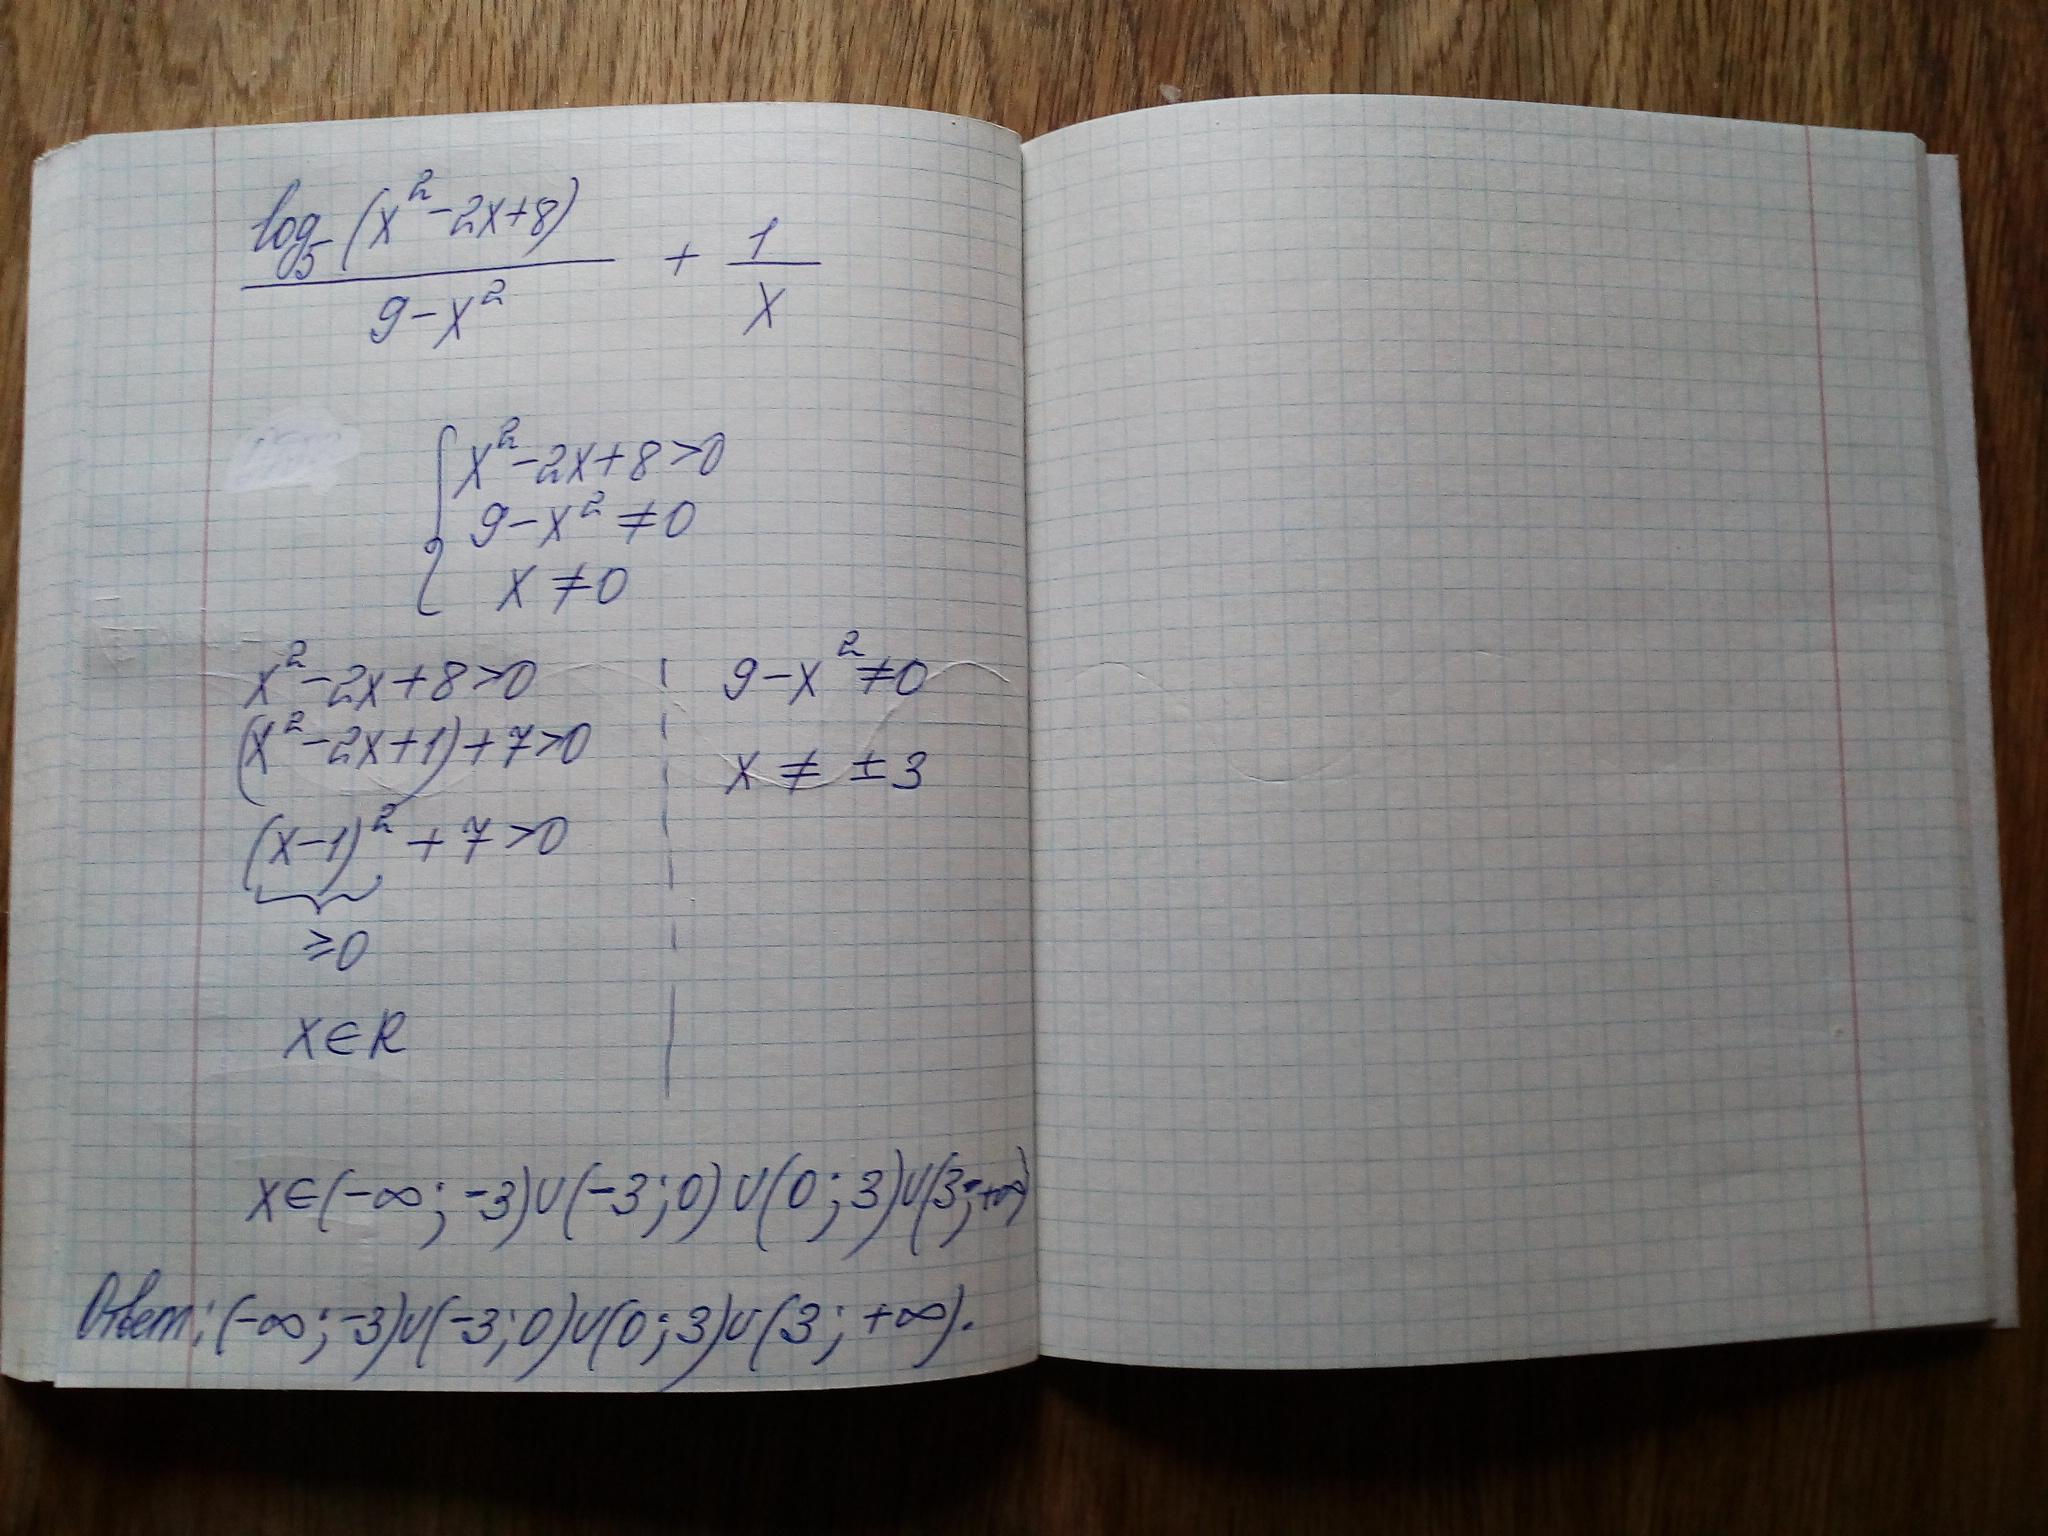 log₅(x²-2x+8) / 9-x² + 1/x
{ x²-2x+8>0
9-x²≠0
x≠0
x²-2x+8>0
(x²-2x+1)+7>0
(x-1)²+7>0
≥0
x∈R
9-x²≠0
x≠±3
x∈(-∞;-3)∪(-3;0)∪(0;3)∪(3;+∞)
Ответ: (-∞;-3)∪(-3;0)∪(0;3)∪(3;+∞).